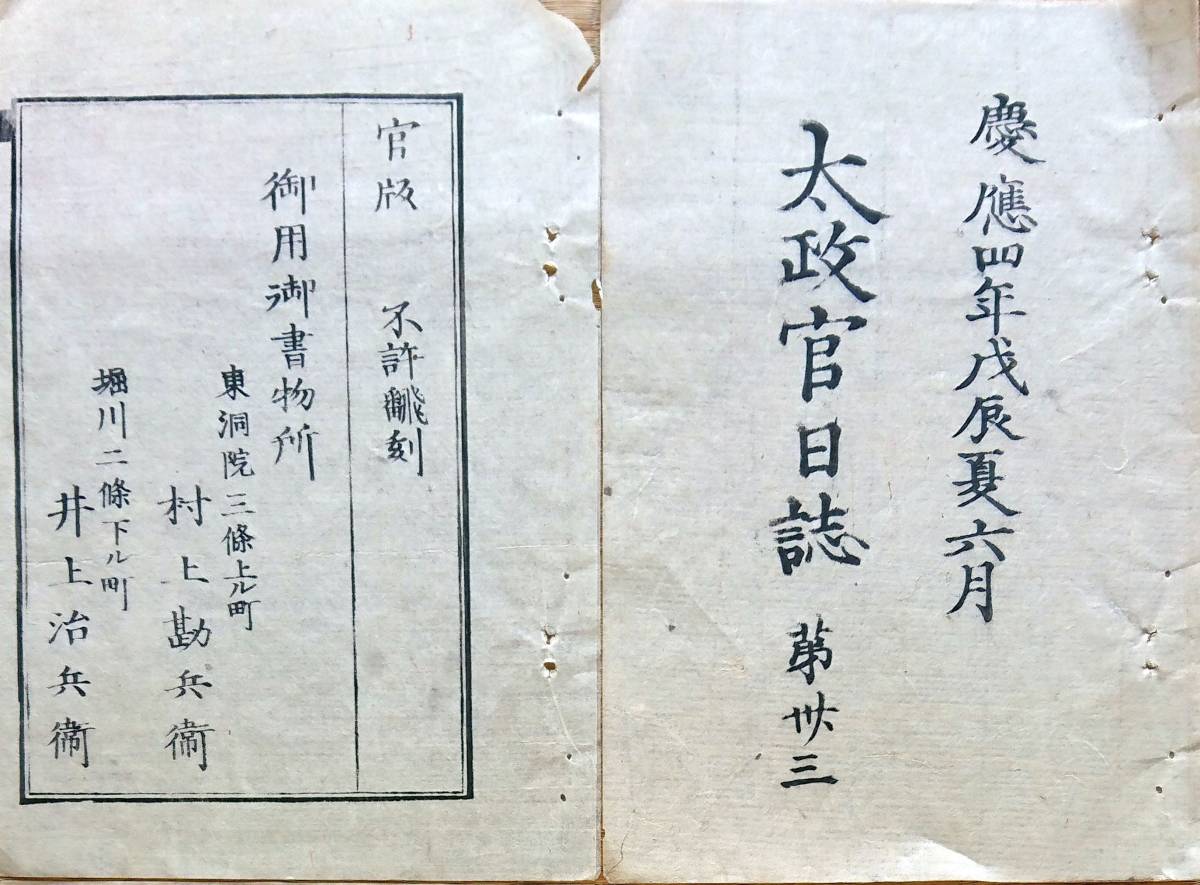 慶應四年戊辰夏六月
太政官日誌 苐卅三
官版 不許飜刻
御用御書物所
東洞院三條上ル町
村上勘兵衞
堀川二條下ル町
井上治兵衞